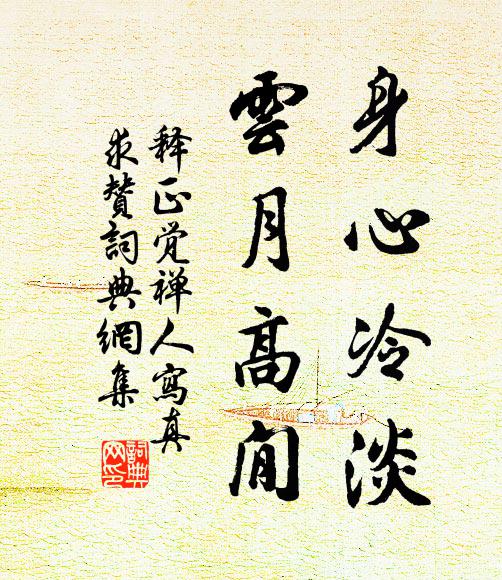 身心冷淡
雲月高閒
释正觉禅人寫真
求赞詞典網集
詞典
网印